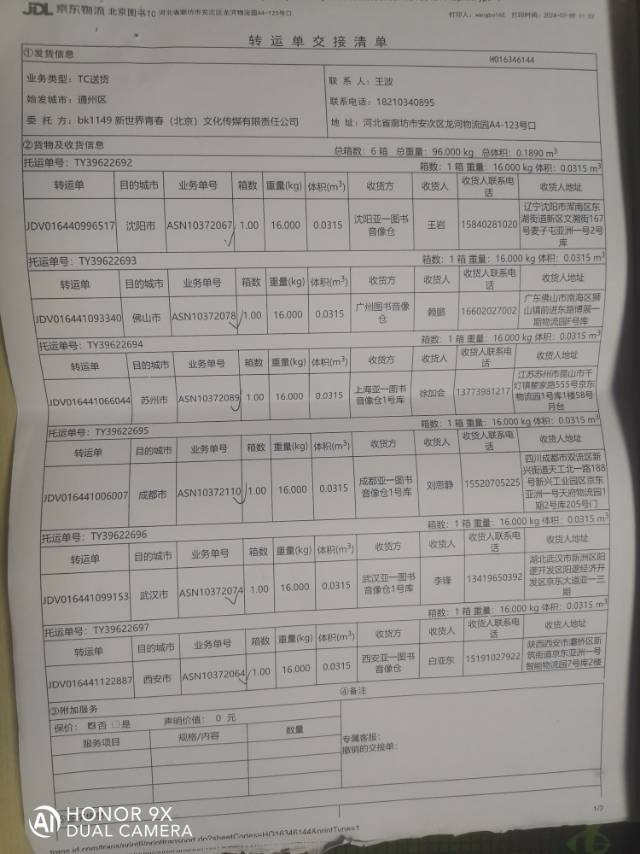 JDL 京东物流 北京图书TC 河北省廊坊市安次区龙河物流园A4-123号口
打印人：wangbo162 打印时间：2024-07-09 11:33
转运单交接清单
①发货信息 HO16346144
业务类型：TC送货 联系人：王波
始发城市：通州区 联系电话：18210340895
委托方：bk1149 新世界青春（北京）文化传媒有限责任公司 地址：河北省廊坊市安次区龙河物流园A4-123号口
②货物及收货信息 总箱数：6 箱 总重量：96.000 kg 总体积：0.1890 m³
托运单号：TY39622692 箱数：1 箱 重量：16.000 kg 体积：0.0315 m³
转运单 目的城市 业务单号 箱数 重量(kg) 体积(m³) 收货方 收货人 收货人联系电话 收货人地址
JDV016440996517 沈阳市 ASN10372067 1.00 16.000 0.0315 沈阳亚一图书音像仓 王岩 15840281020 辽宁沈阳市浑南区东湖街道新区文溯街167号麦子屯亚洲一号2号库
托运单号：TY39622693 箱数：1 箱 重量：16.000 kg 体积：0.0315 m³
转运单 目的城市 业务单号 箱数 重量(kg) 体积(m³) 收货方 收货人 收货人联系电话 收货人地址
JDV016441093340 佛山市 ASN10372078 1.00 16.000 0.0315 广州图书音像仓 赖鹏 16602027002 广东佛山市南海区狮山镇前进东路博展一期物流园F号库
托运单号：TY39622694 箱数：1 箱 重量：16.000 kg 体积：0.0315 m³
转运单 目的城市 业务单号 箱数 重量(kg) 体积(m³) 收货方 收货人 收货人联系电话 收货人地址
JDV016441066044 苏州市 ASN10372089 1.00 16.000 0.0315 上海亚一图书音像仓1号库 徐加会 13773981217 江苏苏州市昆山市千灯镇翟家路555号京东物流园1号库1楼58号月台
托运单号：TY39622695 箱数：1 箱 重量：16.000 kg 体积：0.0315 m³
转运单 目的城市 业务单号 箱数 重量(kg) 体积(m³) 收货方 收货人 收货人联系电话 收货人地址
JDV016441006007 成都市 ASN10372110 1.00 16.000 0.0315 成都亚一图书音像仓1号库 刘思静 15520705225 四川成都市双流区新兴街道天工北一路188号新兴工业园区京东亚洲一号天府物流园1期2号库205号门
托运单号：TY39622696 箱数：1 箱 重量：16.000 kg 体积：0.0315 m³
转运单 目的城市 业务单号 箱数 重量(kg) 体积(m³) 收货方 收货人 收货人联系电话 收货人地址
JDV016441099153 武汉市 ASN10372074 1.00 16.000 0.0315 武汉亚一图书音像仓1号库 李锋 13419650392 湖北武汉市新洲区阳逻开发区阳逻经济开发区京东大道亚一三期
托运单号：TY39622697 箱数：1 箱 重量：16.000 kg 体积：0.0315 m³
转运单 目的城市 业务单号 箱数 重量(kg) 体积(m³) 收货方 收货人 收货人联系电话 收货人地址
JDV016441122887 西安市 ASN10372064 1.00 16.000 0.0315 西安亚一图书音像仓 白亚东 15191027922 陕西西安市灞桥区新筑街道京东亚洲一号智能物流园7号库2楼
③附加服务 ④备注
保价：☑否 □是 声明价值：0 元
服务项目 规格/内容 数量
专属客服：
撤销的交接单：
1/2
HONOR 9X
AI DUAL CAMERA